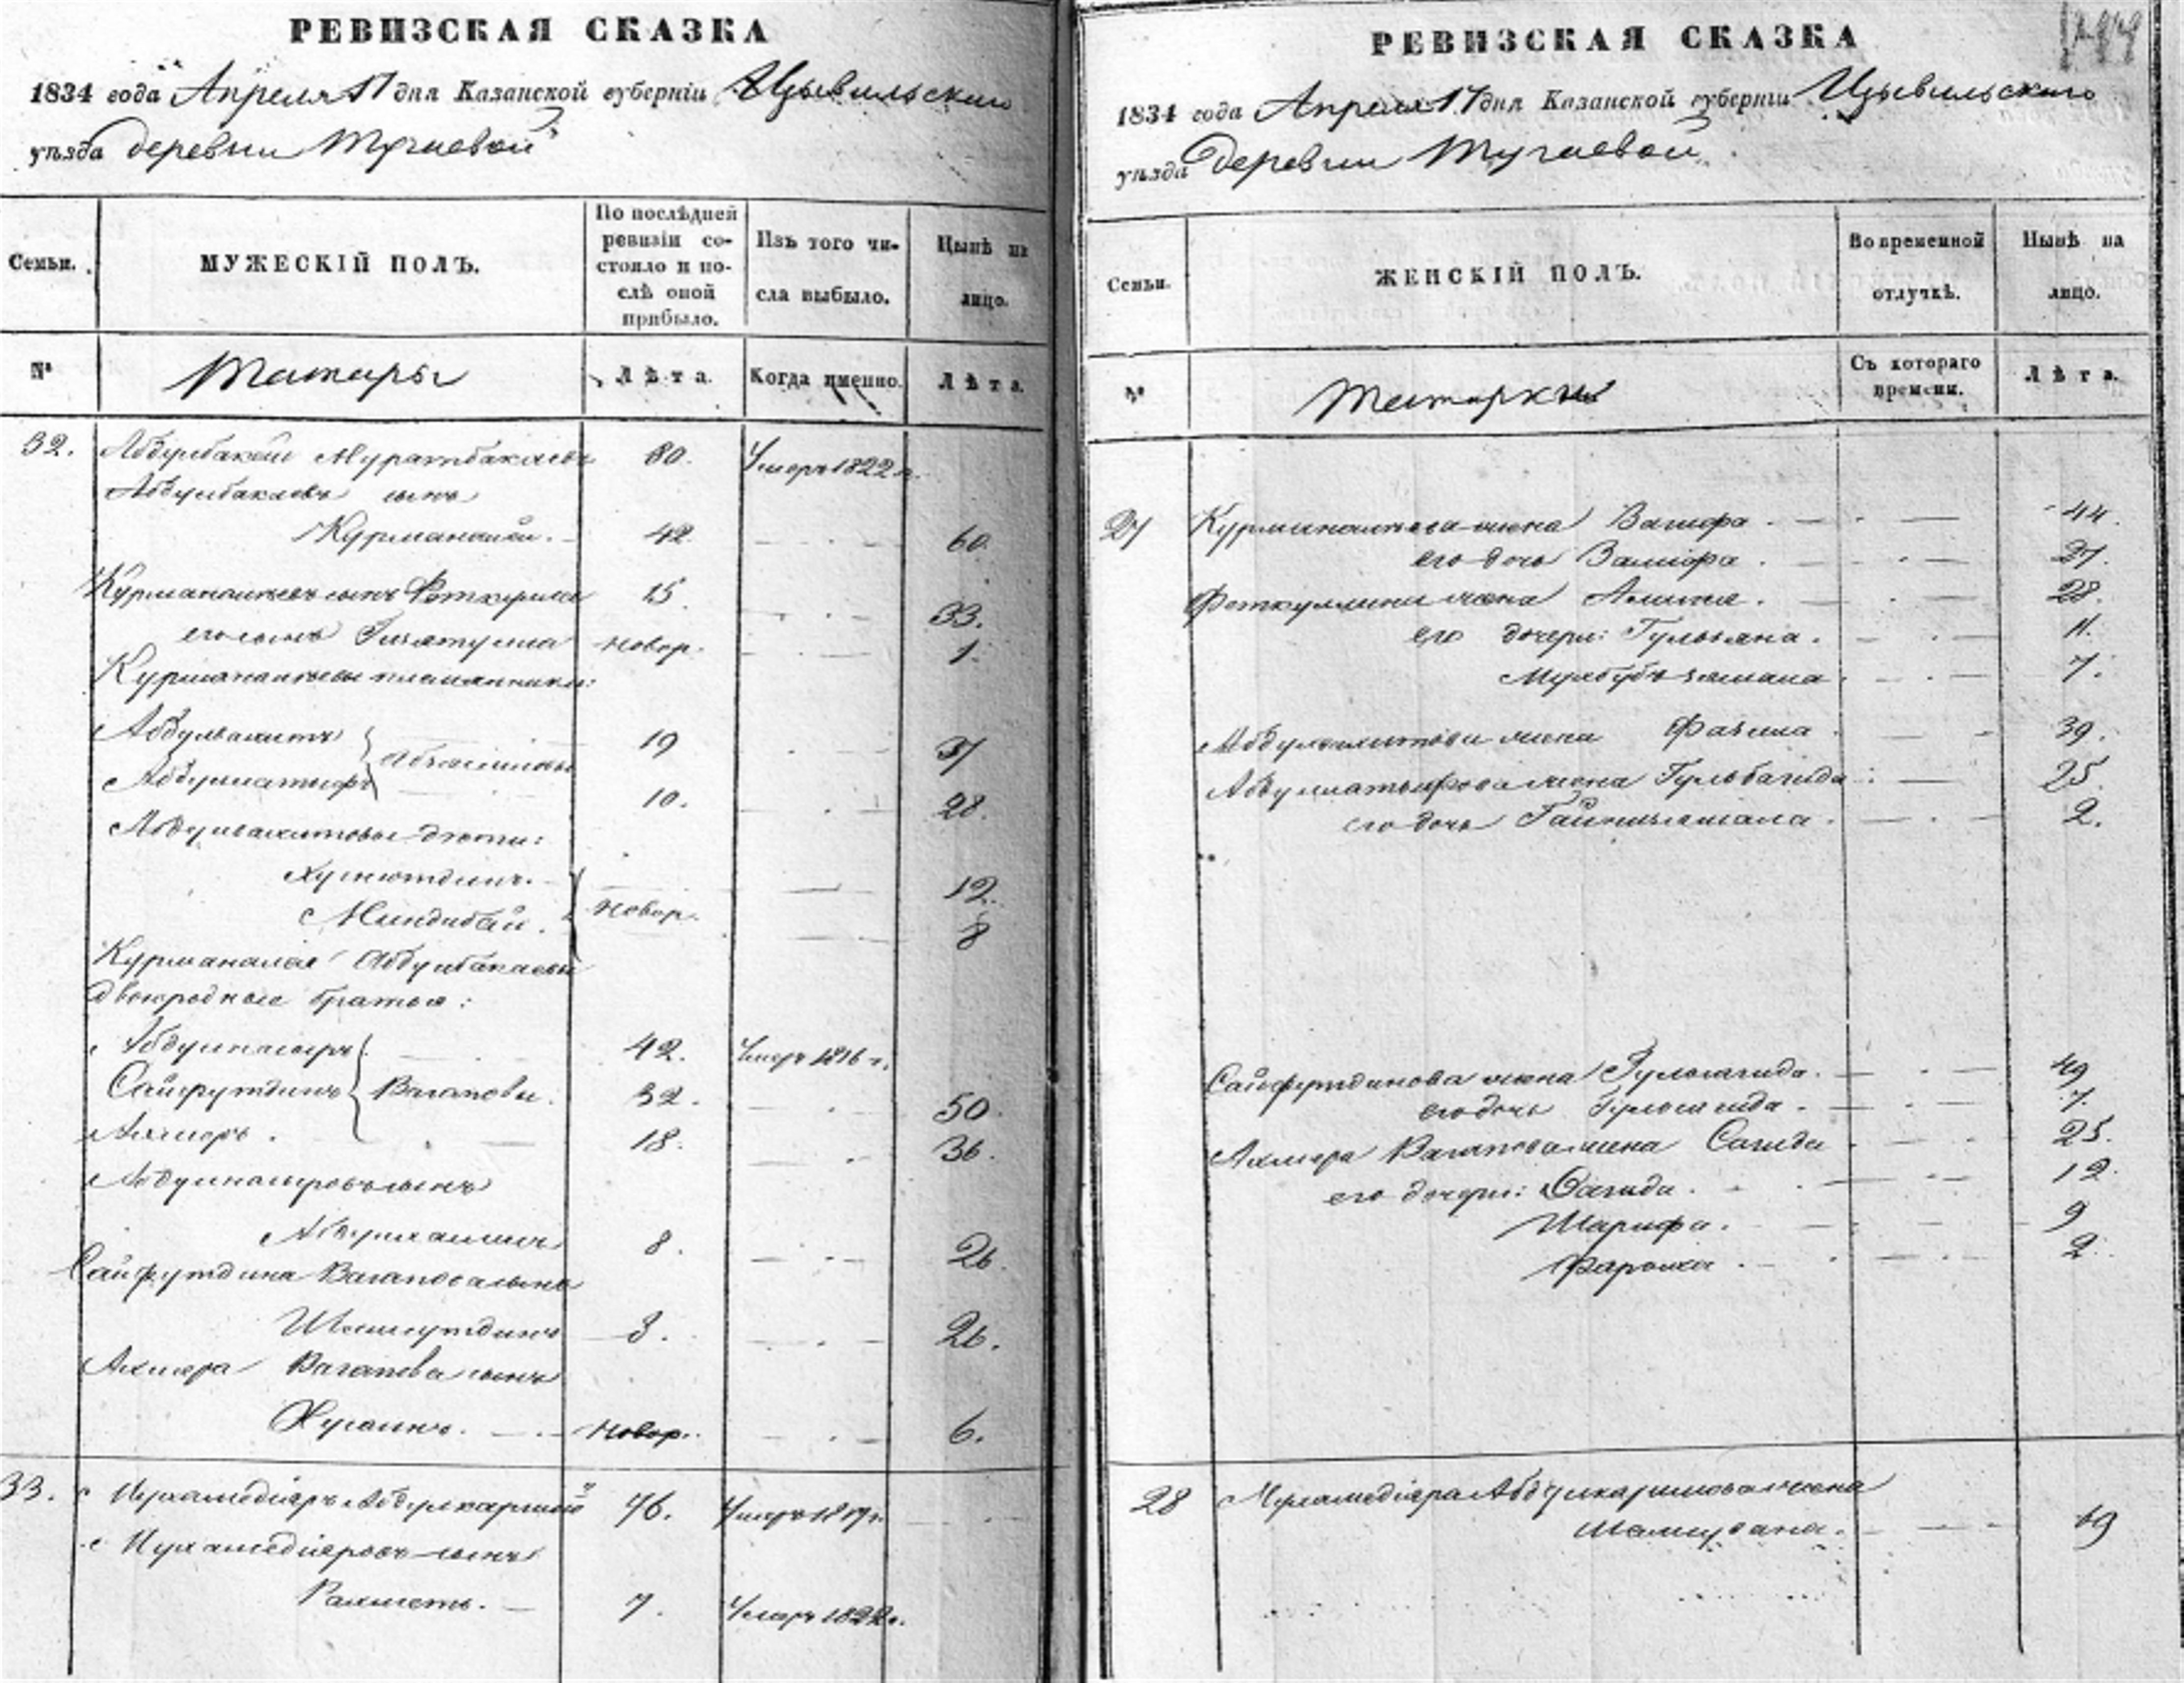 РЕВИЗСКАЯ СКАЗКА
1834 года Апреля 17 дня Казанской губерніи Цывильскаго
уѣзда деревни Тугаевой
Семьи.
МУЖЕСКІЙ ПОЛЪ.
По послѣдней ревизіи состояло и послѣ оной прибыло.
Изъ того числа выбыло.
Нынѣ на лицо.
№
Татары
Лѣта.
Когда именно.
Лѣта.
32. Абдулбакей Муратбакаевъ 80. Умеръ 1822 г.
Абдулбакаевъ сынъ
Курманалей. 42 60.
Курманалеевъ сынъ Фяткулла 15. 33.
его сынъ новор. 1.
Курманалеевы племянники:
Абдулвахитъ 19 37
Абдуллатифъ 10. 28.
Абдулвахитовы дѣти:
Хуснютдинъ. 12.
Миндибай. новор. 8
Курманалея Абдулбакаевы
двоюродные братья:
Абдулнасыръ 42. Умеръ 1816 г.
Сайфутдинъ Вагаповы. 32. 50.
Ахмеръ. 18. 36.
Абдулнасыровъ сынъ
8. 26.
Сайфутдина Вагапова сынъ
Шамсутдинъ 3. 26.
Ахмера Вагапова сынъ
Хусаинъ. новор. 6.
33. Мухамедіяръ Абдулкаримовъ 76. Умеръ
Мухамедіяровъ сынъ
Рахметь. 7. Умеръ 1822 г.
РЕВИЗСКАЯ СКАЗКА
1834 года Апреля 17 дня Казанской губерніи Цывильскаго
уѣзда деревни Тугаевой
Семьи.
ЖЕНСКІЙ ПОЛЪ.
Во временной отлучкѣ.
Нынѣ на лицо.
№
Татарки
Съ котораго времени.
Лѣта.
27 Курманалеева жена 44.
его дочь Замифа. 27.
Фяткуллина жена 28.
его дочери: Гульзяна. 11.
7.
Абдулвахитова жена Фазила 39.
Абдуллатыфова жена Гульбагида 25.
его дочь 2.
Сайфутдинова жена 49
его дочь 7.
Ахмера Вагапова жена Сагида 25.
его дочери: Вагида. 12
Шарифа. 9
2.
28 Мухамедіяра Абдулкаримова жена
69